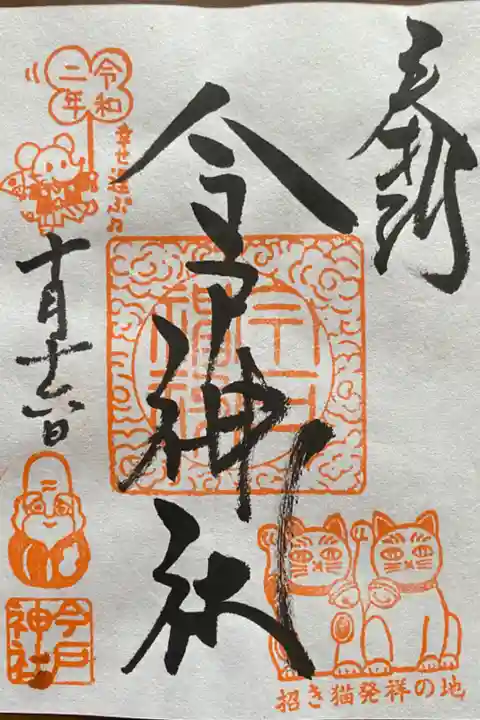 奉拝
今戸神社
令和
二年
幸せ運ぶ♫
十月十六日
今戸
神社
招き猫発祥の地